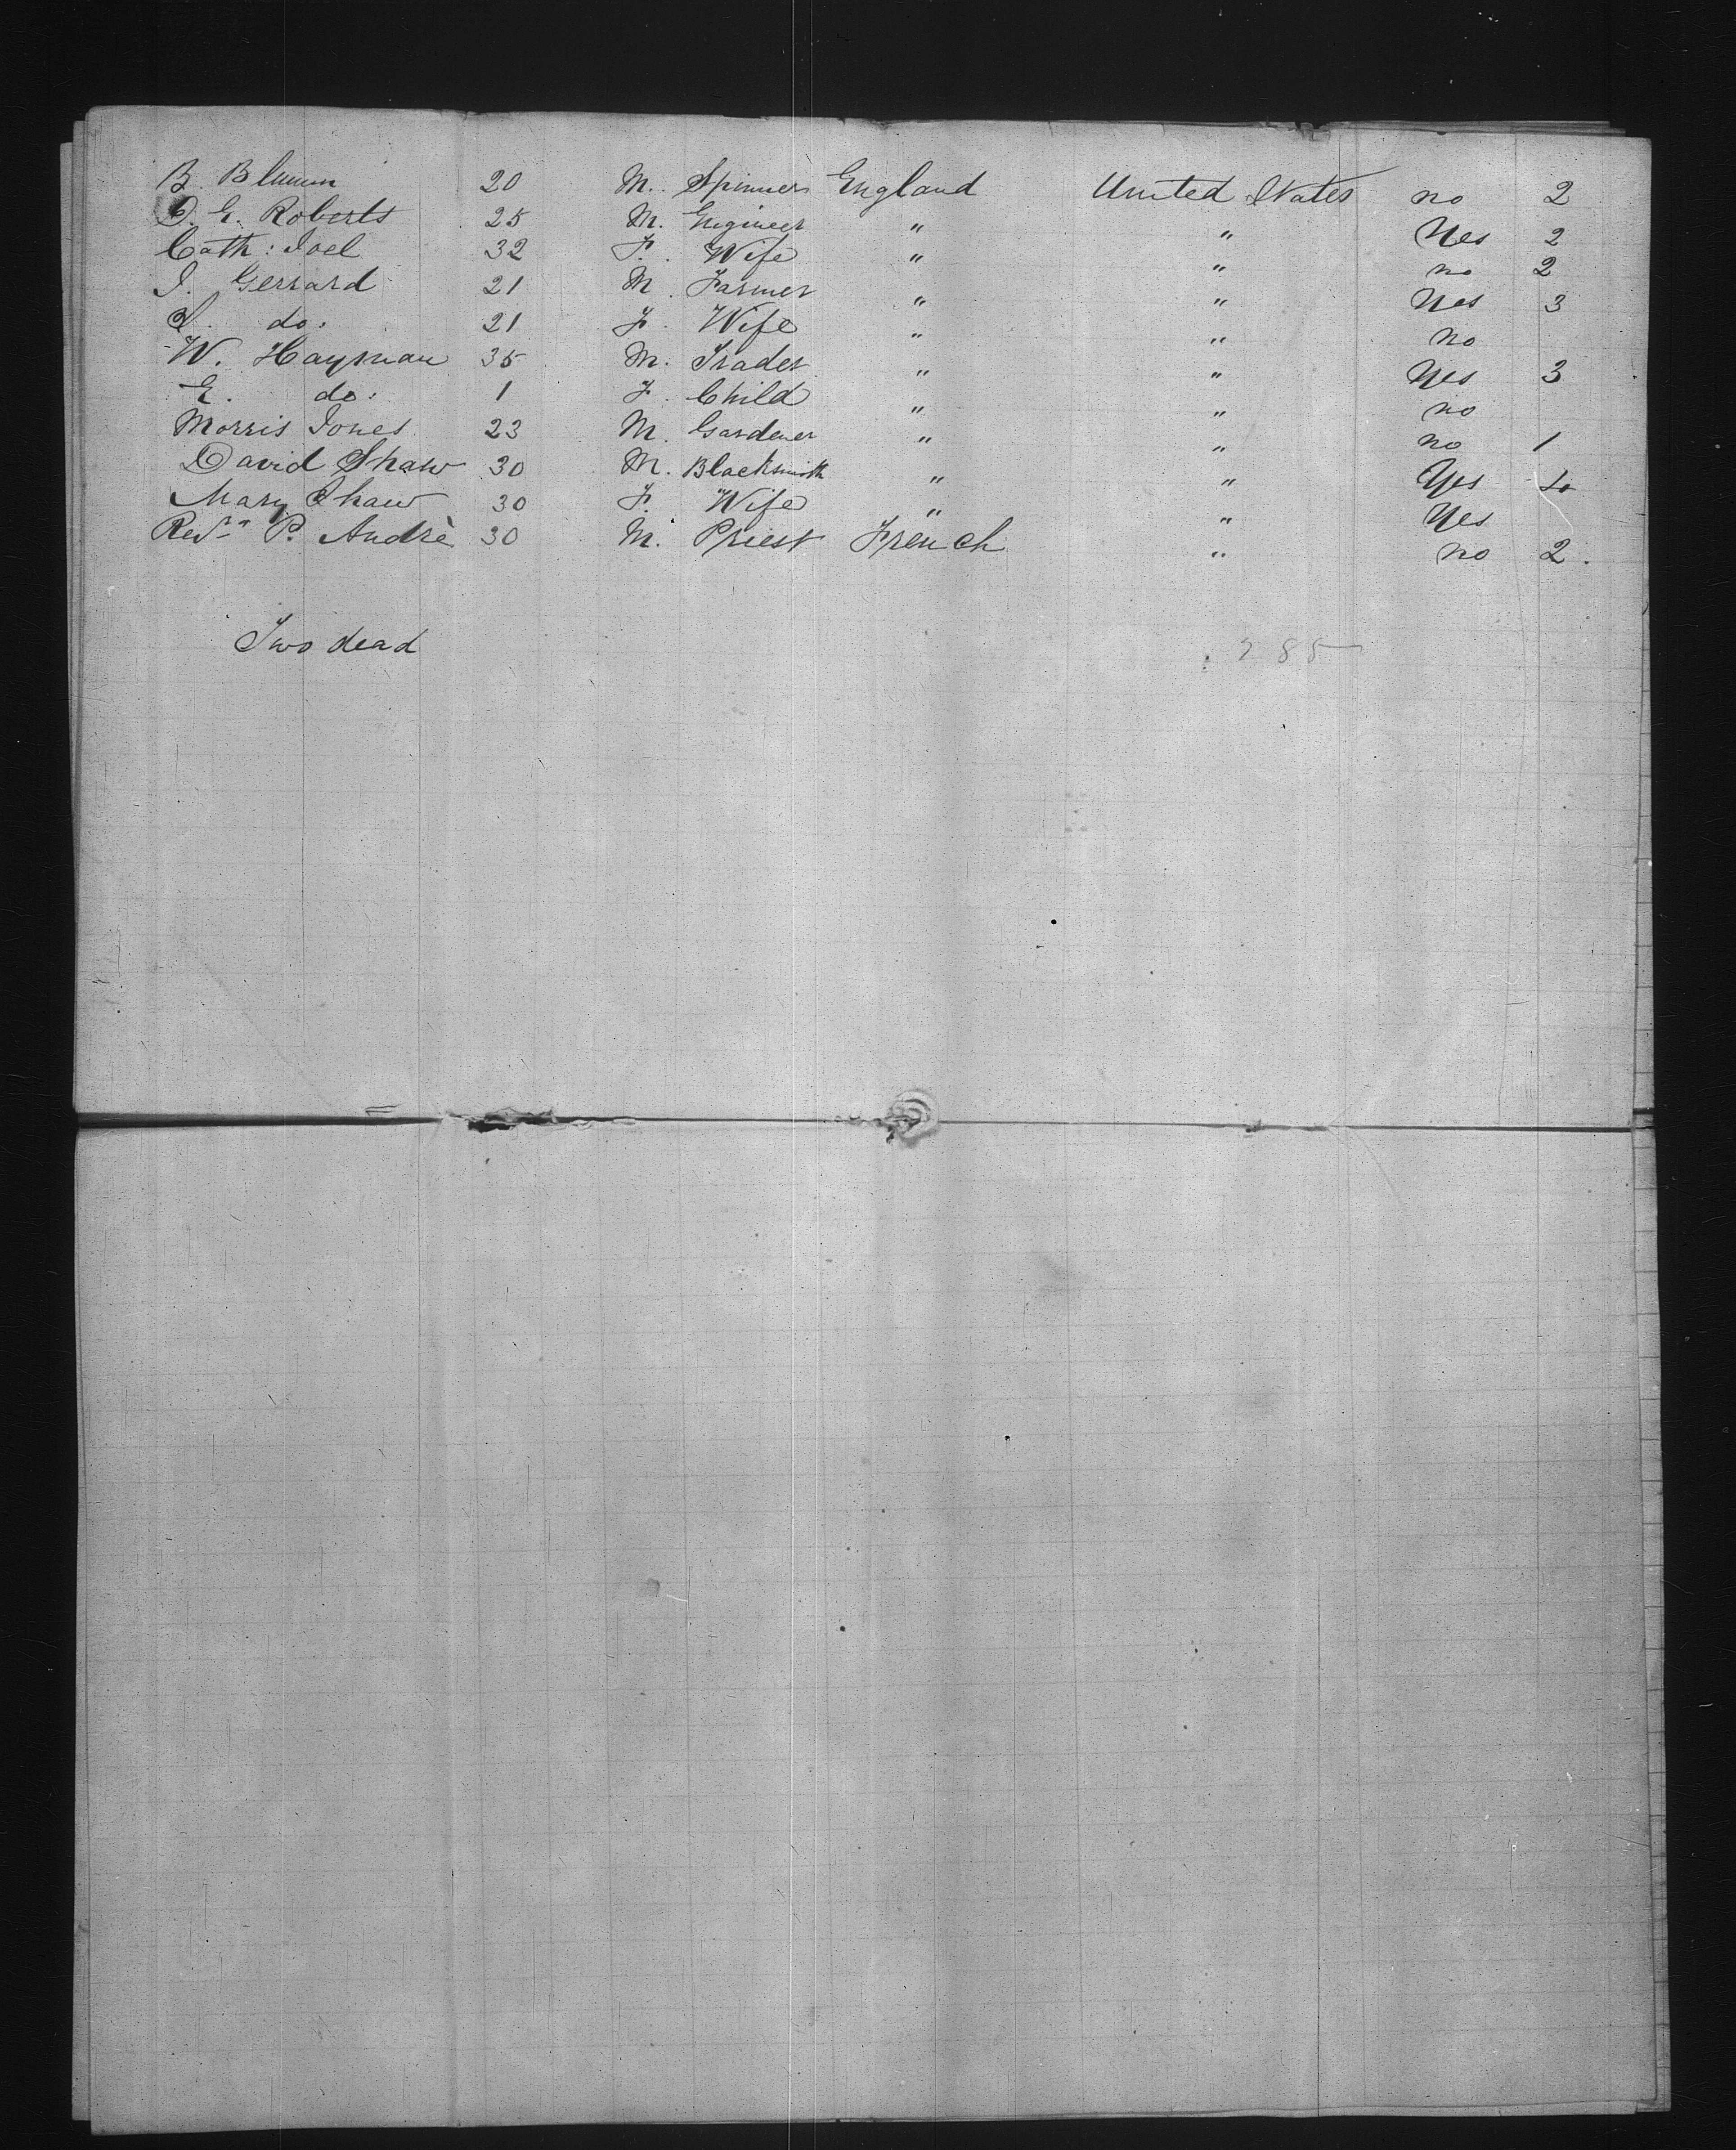 B. Blumm 20 M. Spinner England United States no 2
D. E. Roberts 25 M. Engineer " " Yes 2
Cath: Joel 32 F. Wife " " no 2
J. Gerrard 21 M. Farmer " " Yes 3
S. do: 21 F. Wife " " no
W. Hayman 35 M. Trader " " Yes 3
E. do: 1 F. Child " " no
Morris Jones 23 M. Gardener " " no 1
David Shaw 30 M. Blacksmith " " Yes 4
Mary Shaw 30 F. Wife " " Yes
Revd P. Andrè 30 M. Priest French " no 2.
Two dead 285